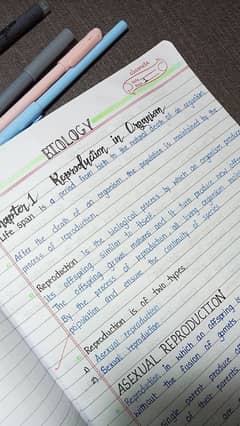 BIOLOGY
Chapter 1 Reproduction in Organism
Life span is a period from birth to the natural death of an organism
After the death of an organism the population is maintained by the
process of reproduction.
Reproduction is the biological process by which an organism produce
its offspring similar to itself.
The offspring grows, matures and in turn produce new
By the process of reproduction, all living organism
population and ensure the continuity of species
Reproduction is of two types
Asexual reproduction
Sexual reproduction
ASEXUAL REPRODUCTION
Reproduction in which an offspring is
without the fusion of gamets
single parent produce
of their parents
are